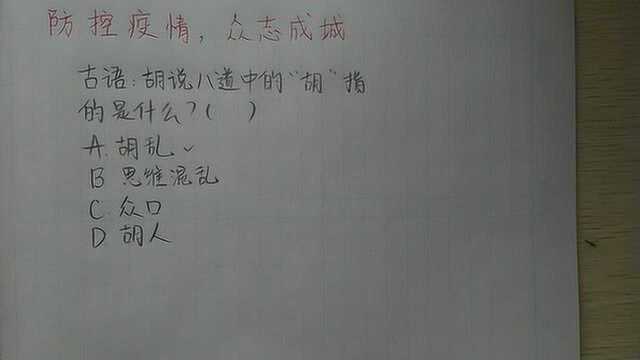 防控疫情，众志成城
古语：胡说八道中的“胡”指
的是什么？（ ）
A. 胡乱 ✓
B 思维混乱
C. 众口
D 胡人